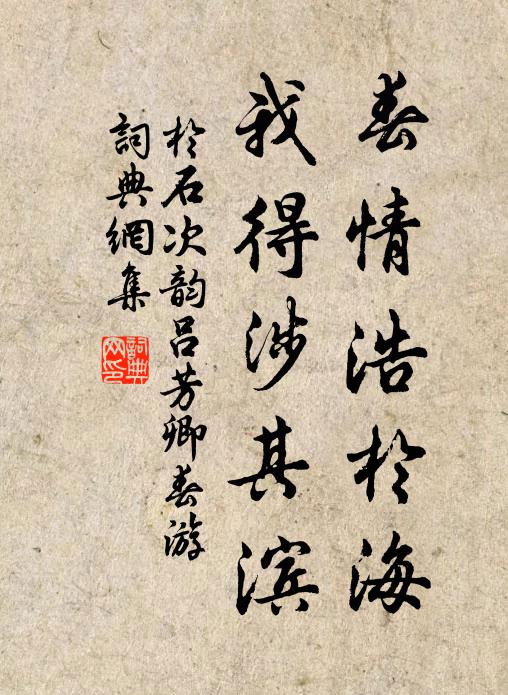 春情浩於海
我得涉其滨
於石次韵吕芳卿春游
詞典網集
詞典網印